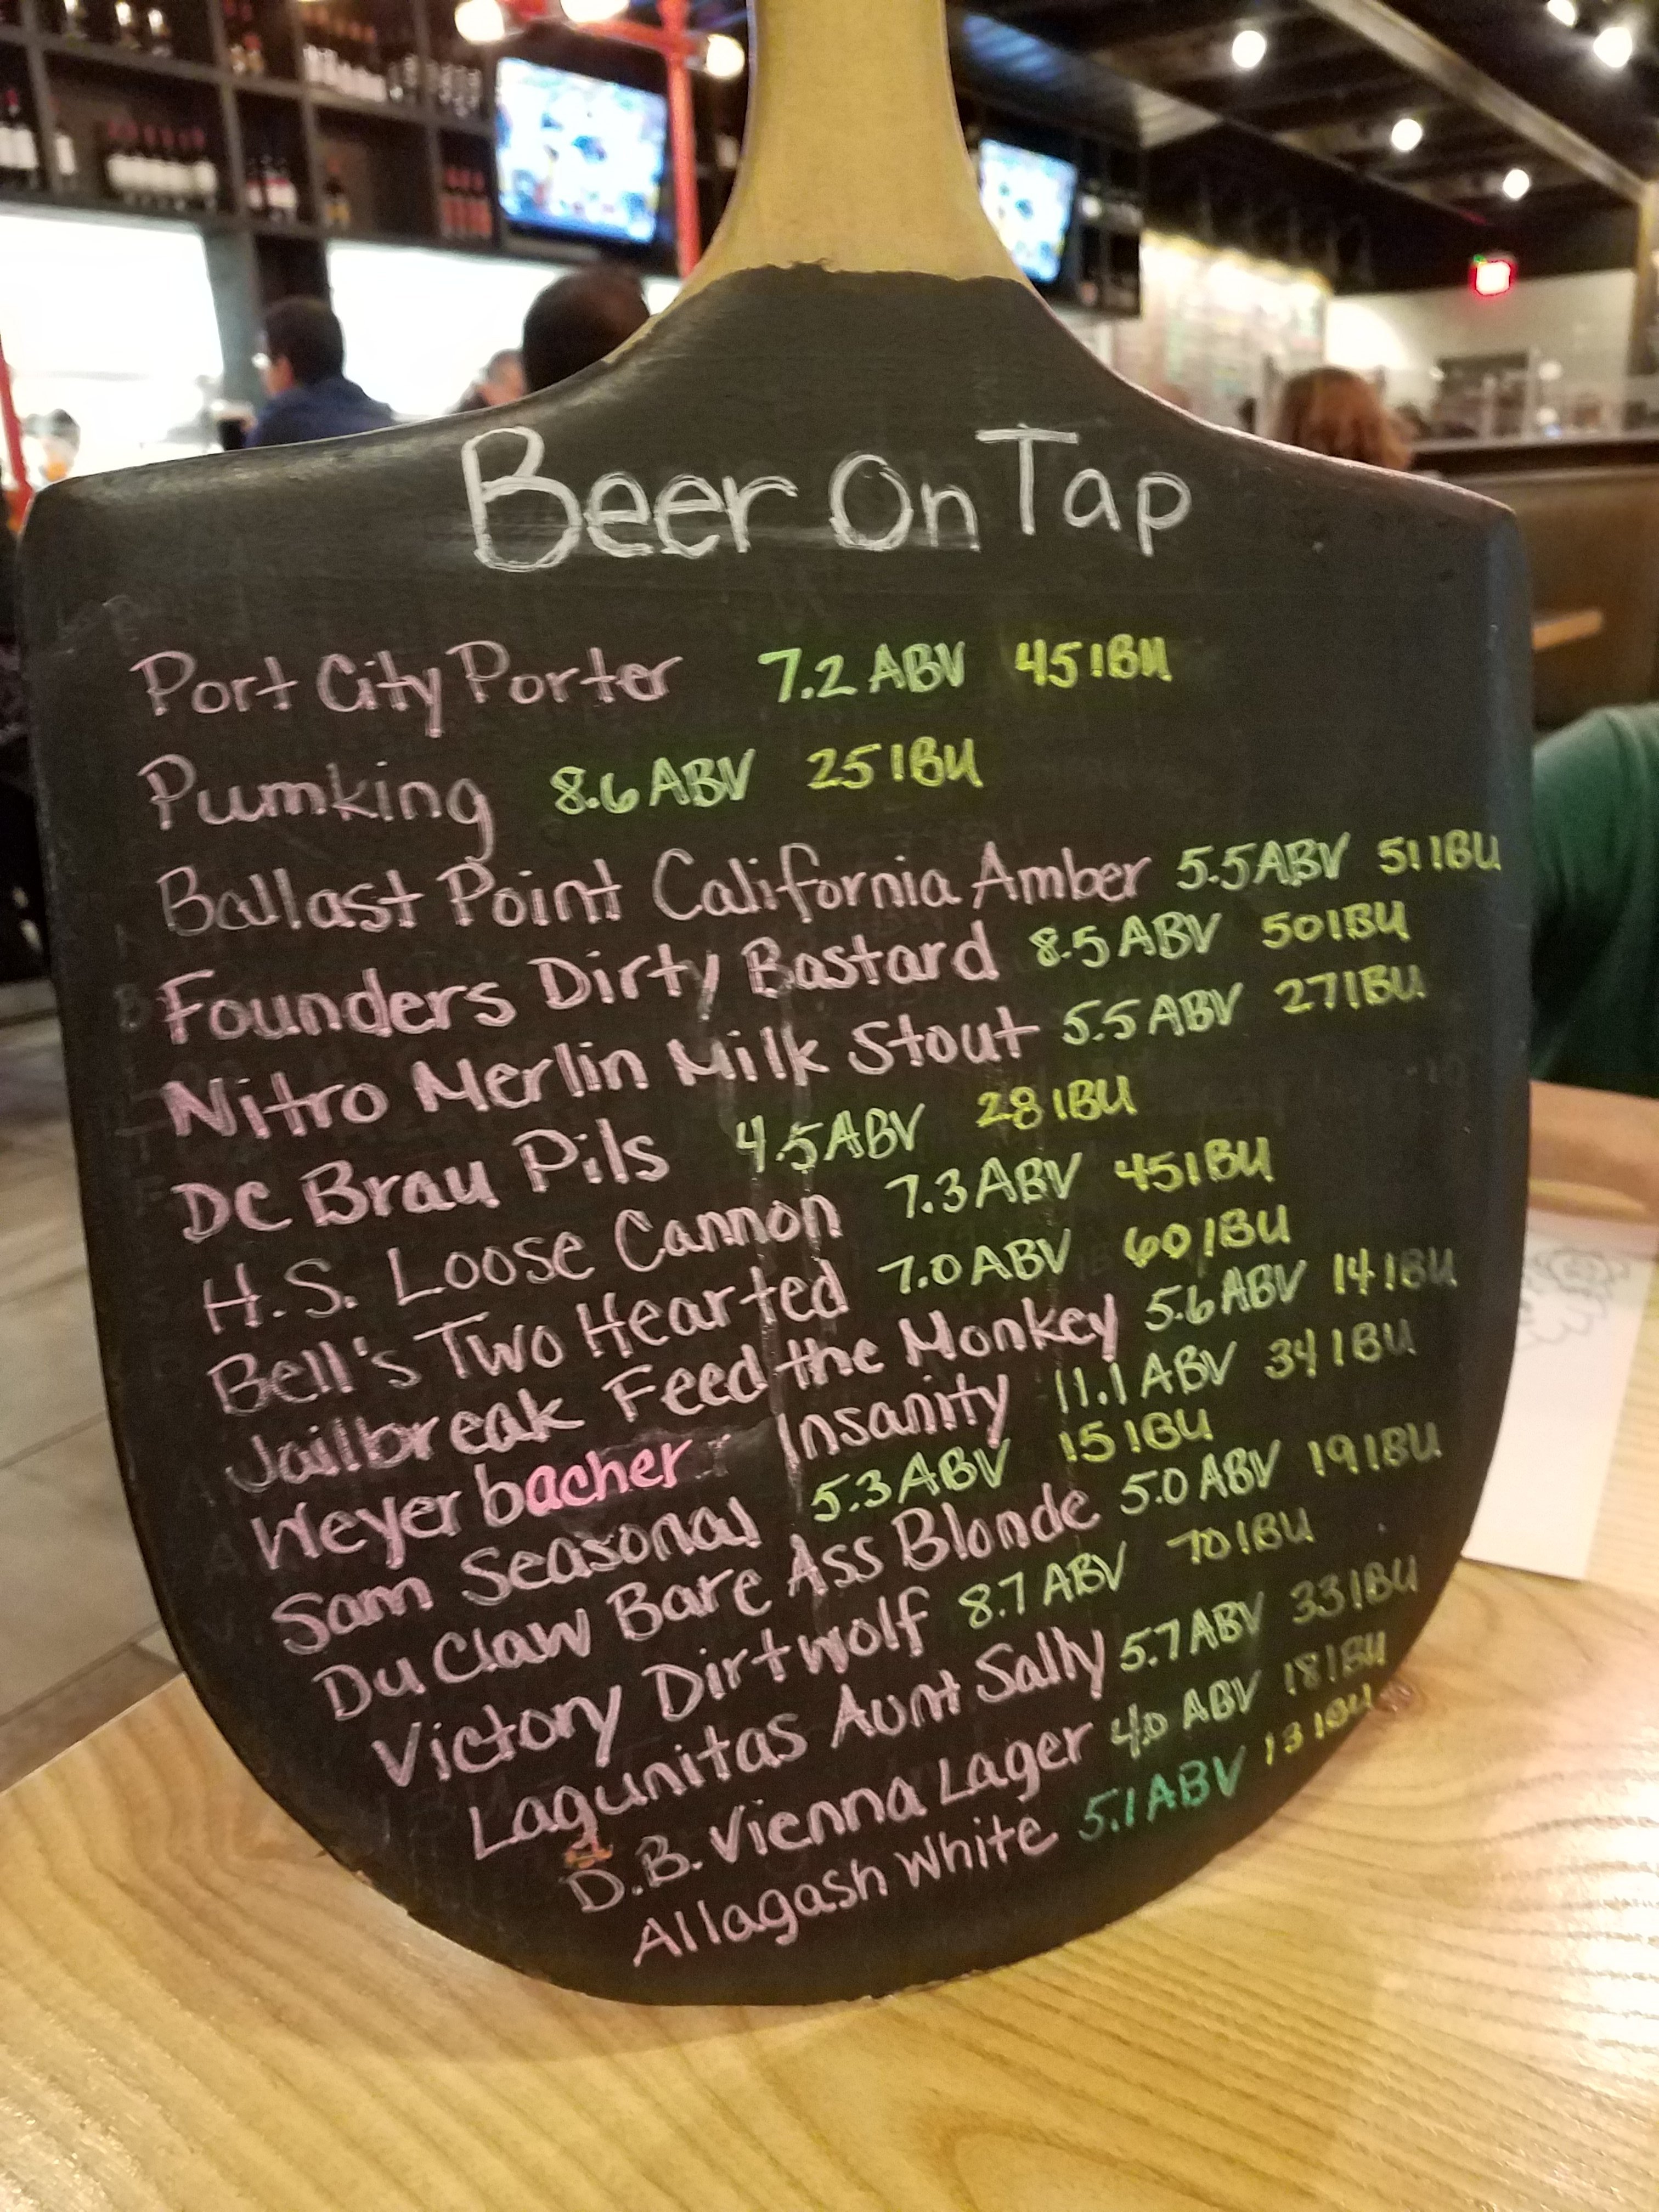 Beer On Tap
Port City Porter 7.2 ABV 45 IBU
Pumking 8.6 ABV 25 IBU
Ballast Point California Amber 5.5 ABV 51 IBU
Founders Dirty Bastard 8.5 ABV 50 IBU
Nitro Merlin Milk Stout 5.5 ABV 27 IBU
DC Brau Pils 4.5 ABV 28 IBU
H.S. Loose Cannon 7.3 ABV 45 IBU
Bell's Two Hearted 7.0 ABV 60 IBU
Jailbreak Feed the Monkey 5.6 ABV 14 IBU
Weyerbacher Insanity 11.1 ABV 34 IBU
Sam Seasonal 5.3 ABV 15 IBU
Du Claw Bare Ass Blonde 5.0 ABV 19 IBU
Victory Dirtwolf 8.7 ABV 70 IBU
Lagunitas Aunt Sally 5.7 ABV 33 IBU
D.B. Vienna Lager 4.0 ABV 18 IBU
Allagash White 5.1 ABV 13 IBU